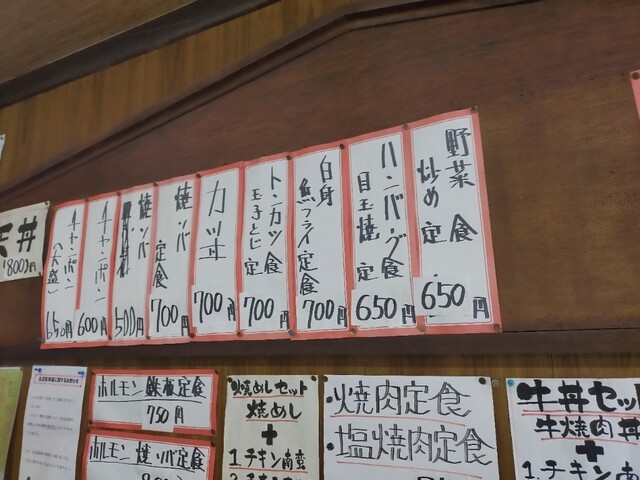 野菜
炒め定食
650円
ハンバーグ定食
目玉焼
650円
白身
魚フライ定食
700円
トンカツ定食
玉子とじ
700円
カツ丼
700円
焼ソバ
定食
700円
焼ソバ
500円
チャンポン
600円
チャンポン
(大盛)
650円
天丼
(800円)
ホルモン鉄板定食
750円
ホルモン焼ソバ定食
焼めしセット
焼めし
+
1.チキン南蛮
・焼肉定食
・塩焼肉定食
牛丼セット
牛焼肉丼
+
1.チキン